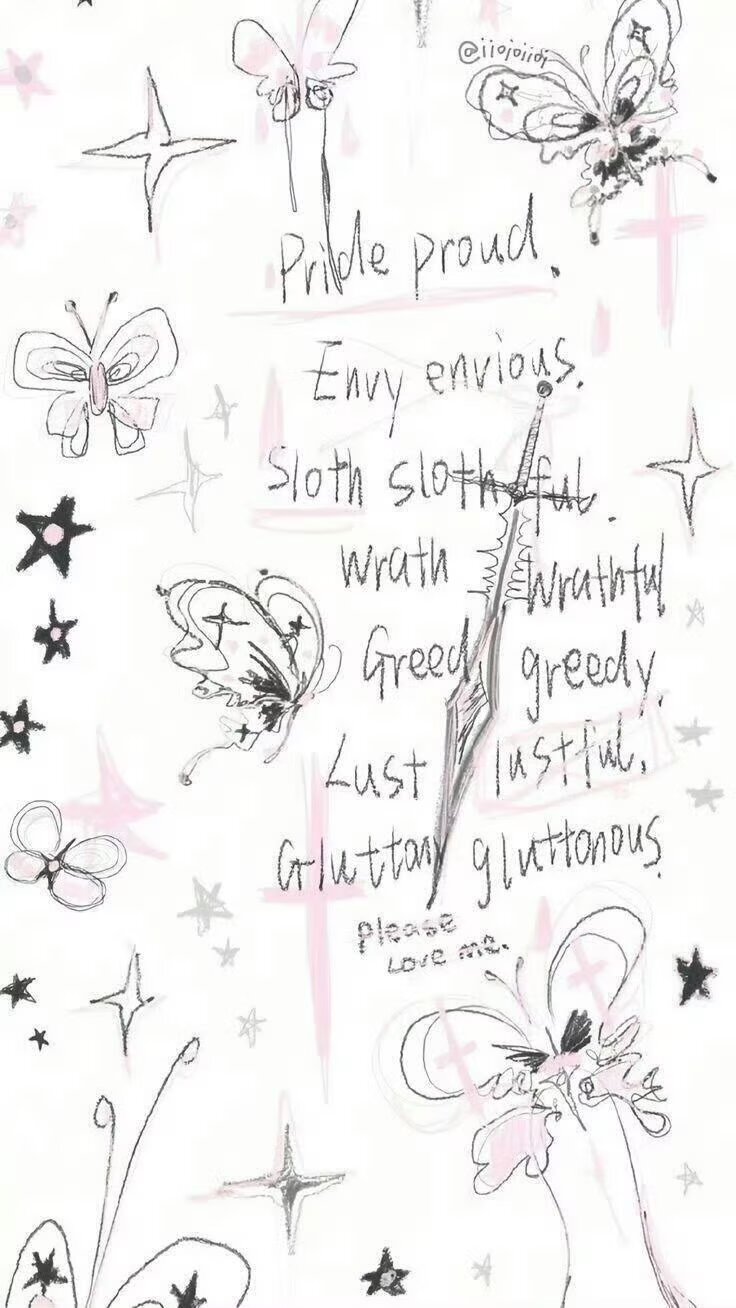 @iiojoiioi
Pride proud.
Envy envious.
Sloth slothful.
Wrath Wrathful
Greed greedy.
Lust lustful.
Gluttony gluttonous.
please
Love me.